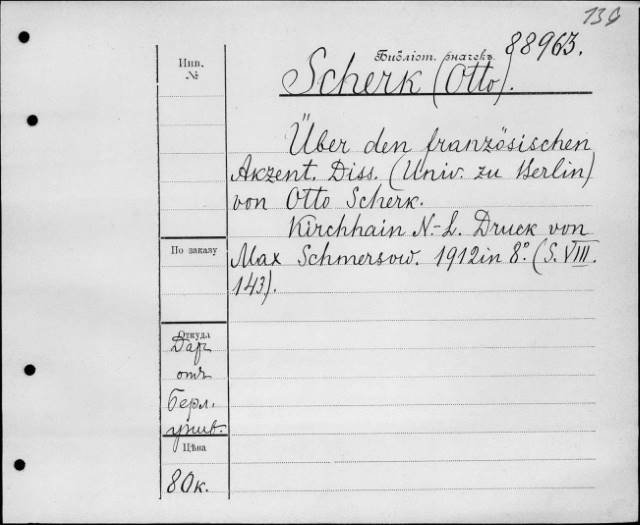 139
Библіот. значекъ 88963.
Инв.
№
Scherk (Otto).
Über den französischen
Akzent. Diss. (Univ. zu Berlin)
von Otto Scherk.
Kirchhain N.-L. Druck von
Max Schmersow. 1912 in 8.° (S. VIII.
143).
По заказу
Откуда
Дар
отъ
Берл.
унив.
Цѣна
80к.